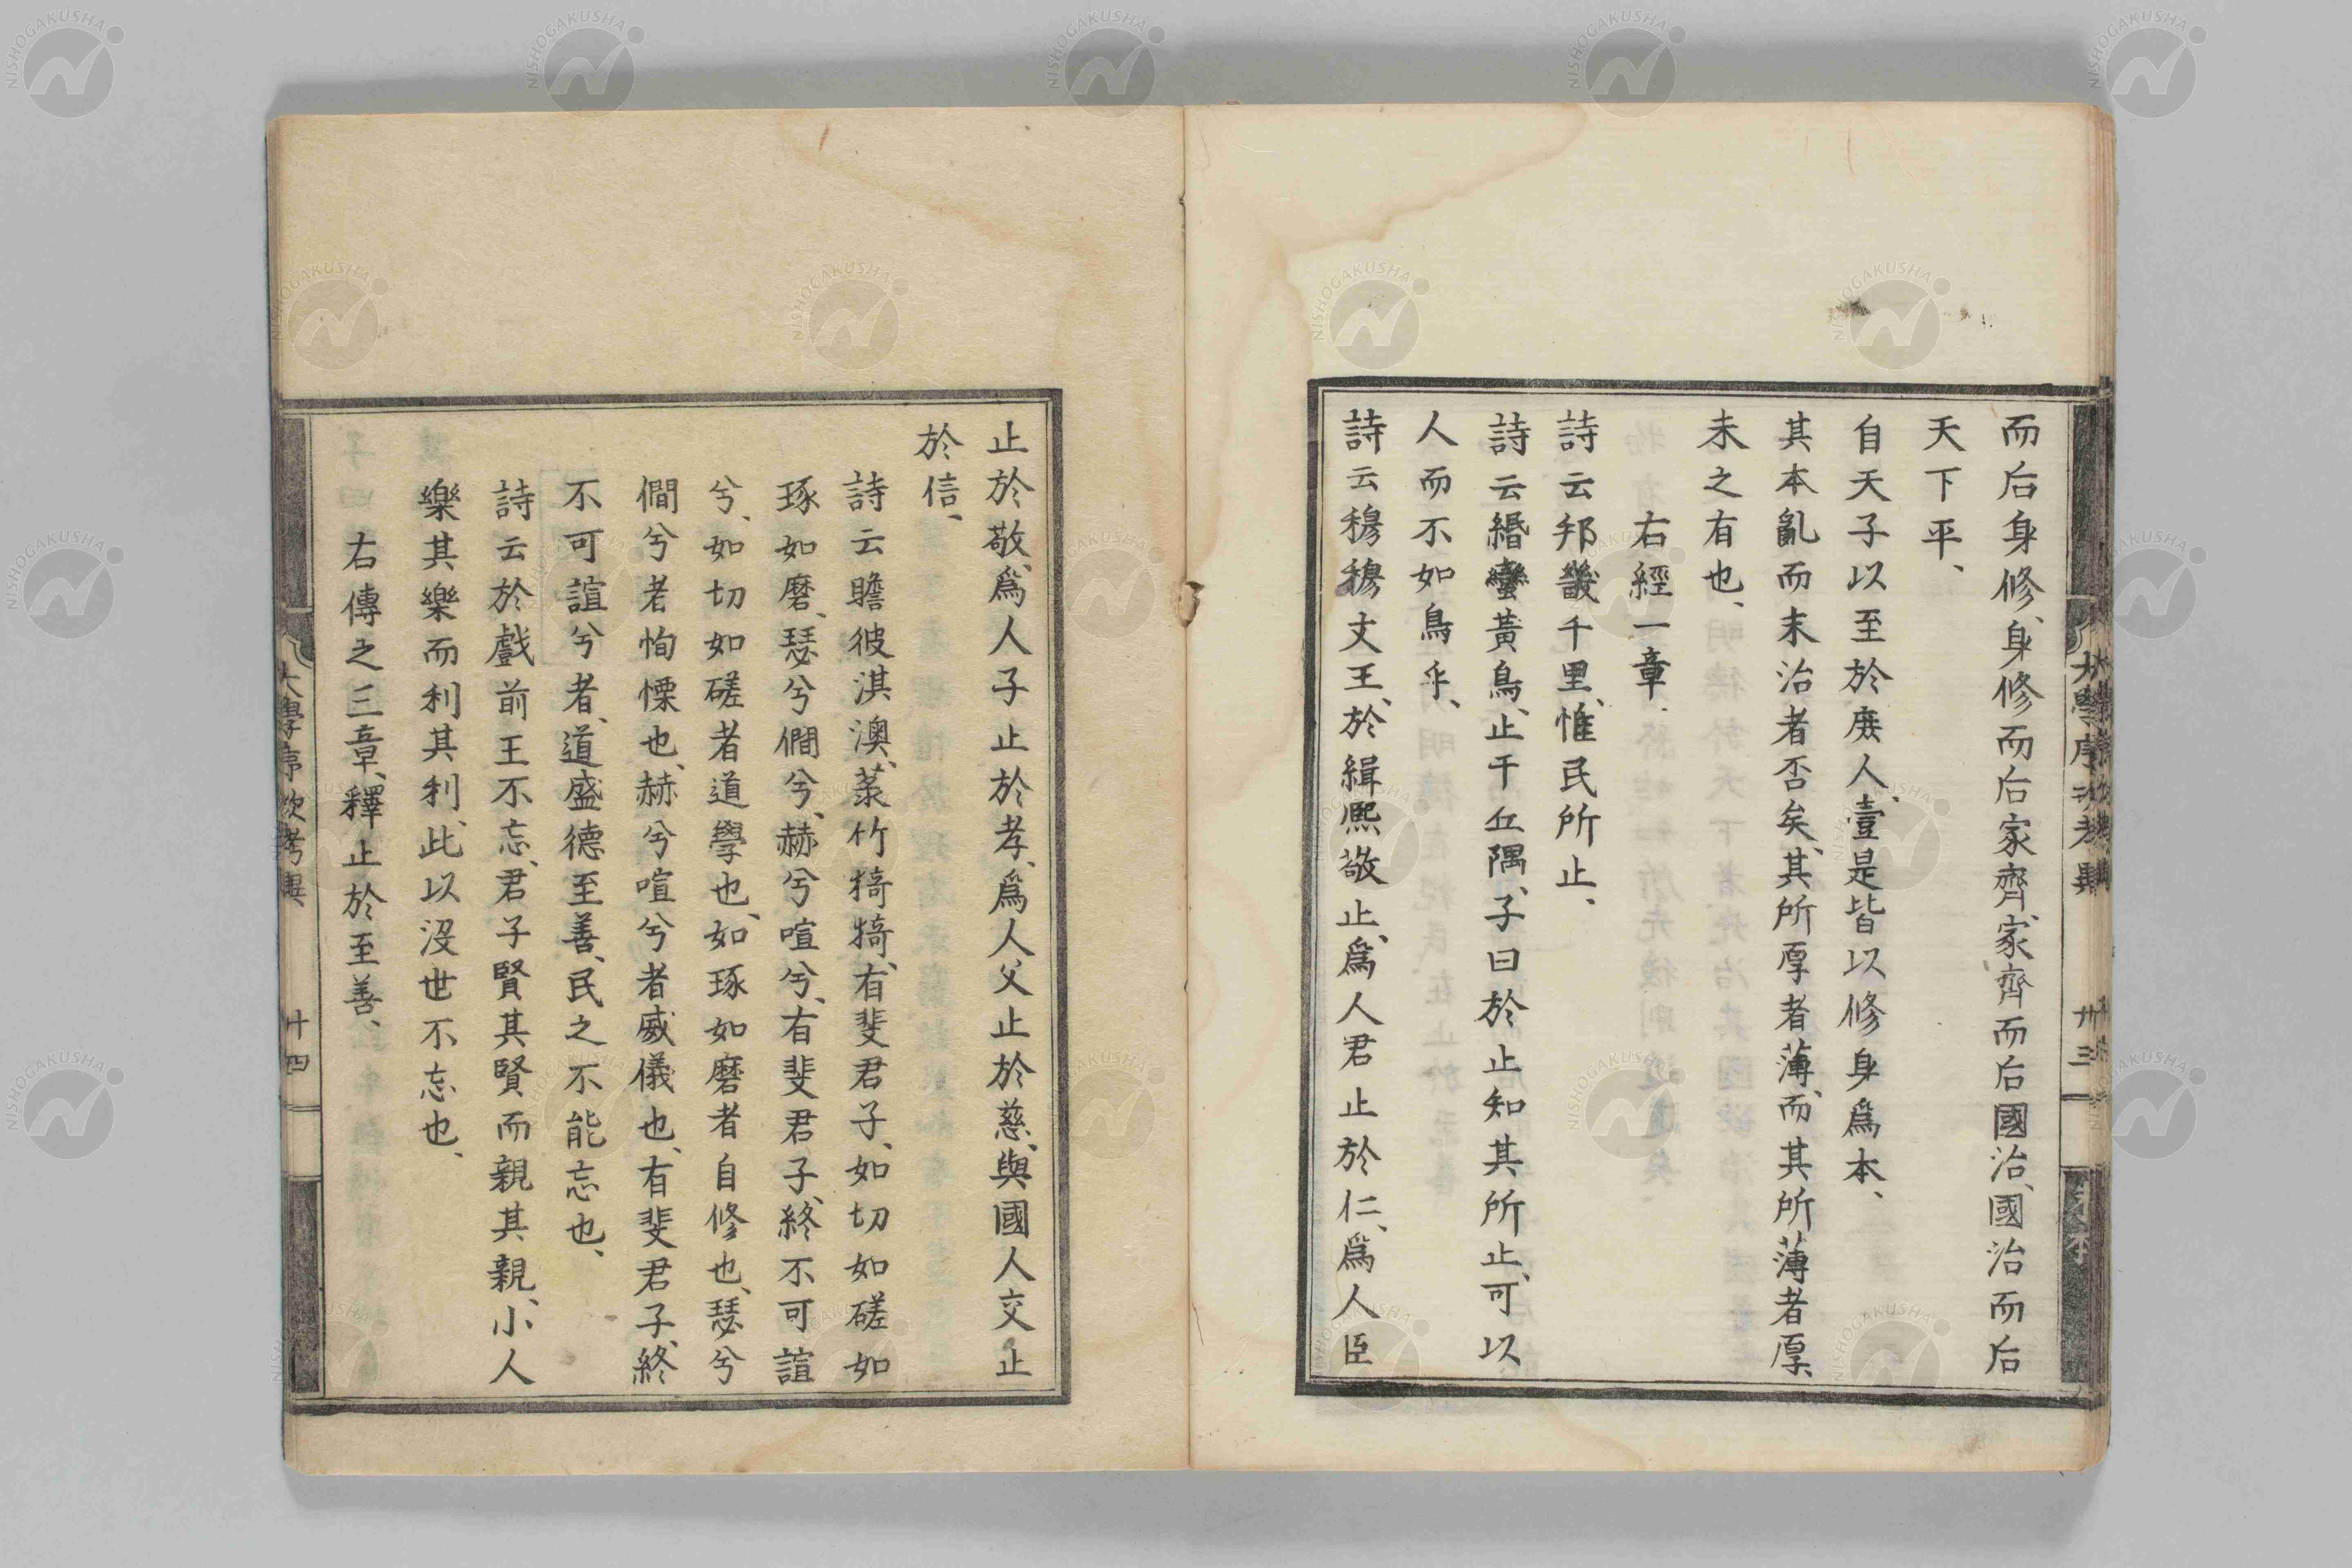 而后身修、身修而后家齊、家齊而后國治、國治而后
天下平、
自天子以至於庶人、壹是皆以修身爲本、
其本亂而末治者否矣、其所厚者薄、而其所薄者厚、
未之有也、
右經一章
詩云邦畿千里、惟民所止、
詩云緡蠻黃鳥、止于丘隅、子曰於止知其所止、可以
人而不如鳥乎、
詩云穆穆文王、於緝熙敬止、爲人君止於仁、爲人臣
止於敬、爲人子止於孝、爲人父止於慈、與國人交止
於信、
詩云瞻彼淇澳、菉竹猗猗、有斐君子、如切如磋如
琢如磨、瑟兮僩兮、赫兮喧兮、有斐君子、終不可諠
兮、如切如磋者道學也、如琢如磨者自修也、瑟兮
僩兮者恂慄也、赫兮喧兮者威儀也、有斐君子、終
不可諠兮者、道盛德至善、民之不能忘也、
詩云於戲前王不忘、君子賢其賢而親其親、小人
樂其樂而利其利、此以沒世不忘也、
右傳之三章、釋止於至善、
大學序次考異
十四
NISHOGAKUSHA